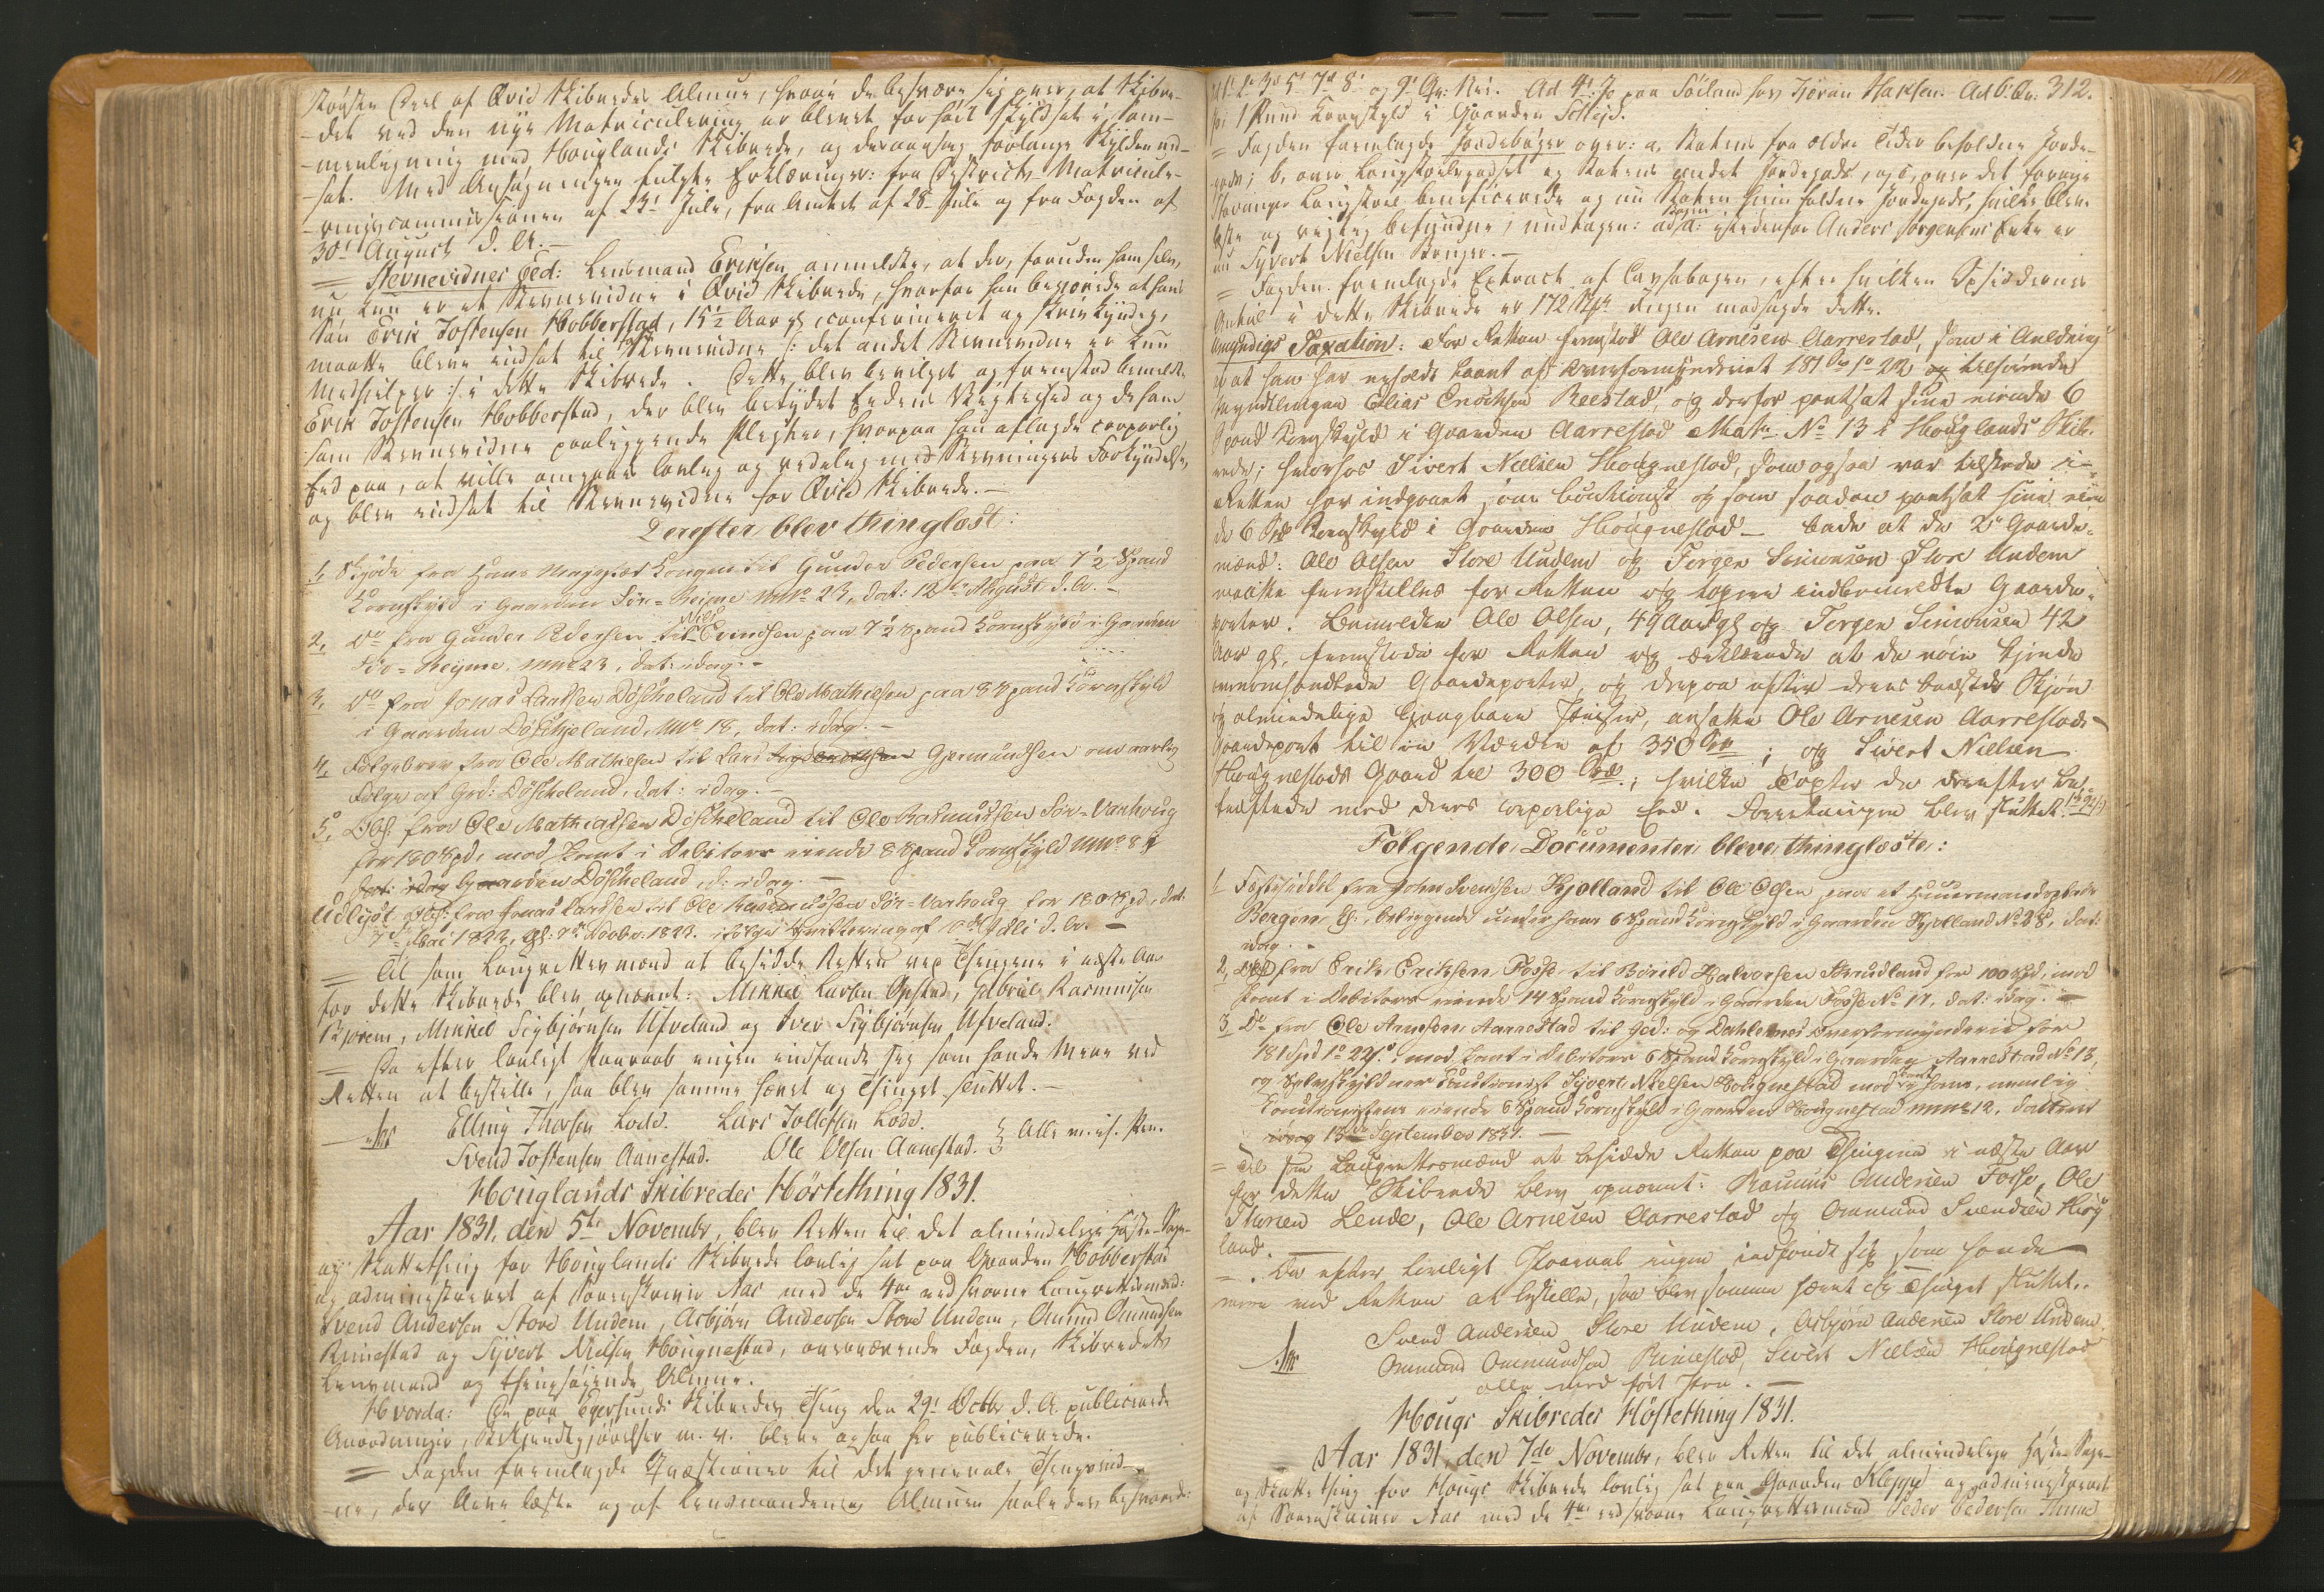 største Deel af Qvid Skibredes Almue, hvori de besvære sig over, at Skibre-
-det ved den nye Matriculering er blevet for høit skyldsat i Sam-
-menligning med Houglands Skibrede, og desaarsag forlange Skylden ned-
-sat. Med Ansøgningen fulgte Erklæringer: fra Districts Matricule-
-ringscommissionen af 23de Juli, fra Amtet af 28 Juli og fra Fogden af
30te August d. A. —
= Stevnevidnes Eed: Lensmand Eriksen anmeldte, at der, foruden ham selv,
nu kun er et Stevnevidne i Qvid Skibrede, hvorfor han begjerede at hans
Søn Erik Jostensen Hobberstad, 15½ Aar gl. confirmeret og skrivkyndig,
maatte blive indsat til Stevnevidne /: det andet Stevnevidne er kun
Medhielper :/ i dette Skibrede. Dette blev bevilget og fremstod bemeldte
Erik Jostensen Hobberstad, der blev betydet Eedens Vigtighed og de ham
som Stevnevidne paaliggende Pligter, hvorpaa han aflagde corporlig
Eed paa, at ville omgaaes lovlig og redelig med Stevningers Forkyndelse,
og blev indsat til Stevnevidne for Qvid Skibrede. —
Derefter blev thinglæst:
1, Skjøde fra Hans Kongen til Gunder Pedersen paa 7½ Spand
Kornskyld i Gaarden Sør-Reime MNo 23, dat: 12te August d. A. —
2, Do fra Gunder Pedersen til Nils Evindsen paa 7½ Spand Kornskyld i Gaarden
Sør-Reime, MNo 23, dat: idag. —
3, Do fra Jonas Larssen Døskeland til Ole Mathiesen paa 8 Spand Kornskyld
i Gaarden Døskjeland, MNo 18, dat: idag. —
4, Følgebrev fra Ole Mathiesen til Lars Gjermundsen om aarlig
Følge af Grd: Døskeland, dat: idag. —
5, Obl. fra Ole Mathiassen Døskeland til Ole Rasmussen Sør-Varhoug
for 180 Spd, mod Pant i Debitors eiende 8 Spand Kornskyld MNo 8
dat: idag Gaarden Døskeland, d: idag. —
Udslygt Obl: fra Jonas Larssen til Ole Rasmussen Sør-Varhoug for 180 Spd, dat.
7de Mai 1823, gl: 7de Novbr. 1823. ifølge Qvittering af Juli d. A. —
= Til som Laugrettesmænd at besidde Retten ved Thingene i næste Aar
for dette Skibrede blev opnævnt: Mikkel Larsen Opstad, Gabriel Rasmusen
Bjorem, Mikkel Sigbjørnsen Ufveland og Iver Sigbjørnsen Ufveland.
= Da efter lovligt Paaraab ingen indfandt sig som havde mere ved
Retten at bestille, saa blev samme hævet og Thinget sluttet. —
Aas Elling Thorsen Lode. Lars Tollefsen Lode.
Svend Jostensen Aanestad. Ole Olsen Aanestad. } Alle m. i. f. Pen.
Houglands Skibredes Høstething 1831.
Aar 1831, den 5te Novembr, blev Retten til det almindelige Høste-Sage-
og Skattething for Houglands Skibrede lovlig sat paa Gaarden Hobberstad
og administreret af Sorenskriver Aas med de 4re edsvorne Laugrettesmænd:
Svend Andersen Store Undem, Asbjørn Andersen Store Undem, Omund Omundsen
Rimestad og Syvert Nielsen Hougnestad, overværende Fogden, Skibredets
Lensmand og thingsøgende Almue.
Hvorda: De paa Egersunds Skibredes Thing den 29de Octbr d. A. publicerede
Anordninger, Bekjendtgjørelser m. v. bleve ogsaa her publicerede.
= Fogden fremlagde Qvæstioner til det generale Thingsvid-
-ne, der bleve læste og af Lensmanden og Almuen saaledes besvarede:
Ad 1ste 2de 3de 5te 7de 8de og 9de Qv: Nei. Ad 4de: Jo paa Söiland hos Tjøran Haksen. Ad 6: Qv. 312.
for 1 Pund Kornskyld i Gaarden
= Fogden fremlagde Jordebøger over: a, Statens fra ældre Tider beholdne Jorde-
gods; b, over Laugstolegodset og Statens andet Jordegods, og c, over det forrige
Stavanger Laugstols beneficerede og nu Staten hjemfaldne Jordegods, hvilke bleve
læste og rigtig befundne; undtagen: ad a: istedenfor Anders Jørgensens Enke er
nu Syvert Nielsen Bruger. —
= Fogden fremlagde Extract af hvilken Opsiddernes
Antal i dette Skibrede er 172 Stk. Ingen modsagde dette.
Umyndigs Taxation: For Retten fremstod Ole Arnesen Aarrestad, som i Anledning
at han har erholdt Laant af Overformynderiet 181 Spd 1o 22 tilhørende
Myndlingen Elias Enochsen Reestad, og derfor pantsat sine eiende 6
Spand Kornskyld i Gaarden Aarrestad Matr. No 13 i Houglands Skib-
rede; hvorhos Sivert Nielsen Hougnestad, som ogsaa var tilstede i
Retten har indgaaet som Cautionist og som saadan pantsat sine eien-
de 6 Spd Kornskyld i Gaarden Hougnestad — bad at de 2de Gaard-
mænd: Ole Olsen Store Undem og Torger Simonsen Store Undem
maatte fremstilles for Retten og taxere indbemeldte Gaarde-
parter. Bemeldte Ole Olsen, 49 Aar gl og Torger Simonsen 42
Aar gl, fremstode for Retten og erklærede at de nøie kjende
ovenomhandlede Gaardeparter, og derpaa efter deres bedste Skjøn
og almindelige Gangbare Priser, ansatte Ole Arnesen Aarrestads
Gaardepart til en Værdie af 350 Spd; og Sivert Nielsen
Hougnestads Gaard til 300 Spd; hvilke Taxter de derefter be-
kræftede med deres corporlige Eed. Forretningen blev sluttet.
Følgende Documenter bleve thinglæste:
1, Fæstesedel fra John Svendsen Kjolland til Ole Olsen paa et Huusmandspladse
Bergene beliggende under hans 6 Spand Kornskyld i Gaarden Kjolland No 28, dat:
idag. —
2, Obl fra Erik Eriksen Fosse til Börild Halvorsen for 100 Spd, mod
Pant i Debitors eiende 14 Spand Kornskyld i Gaarden Fosse No 17, dat: idag. —
3, Do fra Ole Arnesen Aarrestad til Jed: og Dahlernes Overformynderie for
181 Spd 1o 22s., mod Pant i Debitors 6 Spand Kornskyld i Gaarden Aarrestad No 13,
og Selvskyldner Cautionist Syvert Nielsen Hougnestad mod Pant i hans, nemlig
Cautionistens eiende 6 Spand Kornskyld i Gaarden Hougnestad MNo 12, dateret
idag 13de September 1831. —
= Til som Laugrettesmænd at besidde Retten paa Thingene i næste Aar
for dette Skibrede blev opnævnt: Rasmus Andersen Fosse, Ole
Lende, Ole Arnesen Aarrestad og Ommund Svendsen
land. —
= Da efter lovligt Paaraab ingen indfandt sig som havde
mere ved Retten at bestille, saa blev samme hævet og Thinget sluttet.
Svend Andersen Store Undem, Asbjørn Andersen Store Undem.
Aas Ommund Ommundsen Rimestad, Sivert Nielsen Hougnestad
alle med ført Pen. —
Hougs Skibredes Höstething 1831.
Aar 1831, den 7de Novembr, blev Retten til det almindelige Høste-Sage-
og Skattething for Hougs Skibrede lovlig sat paa Gaarden Klepp og administreret
af Sorenskriver Aas med de 4re edsvorne Laugrettesmænd Peder Pedersen